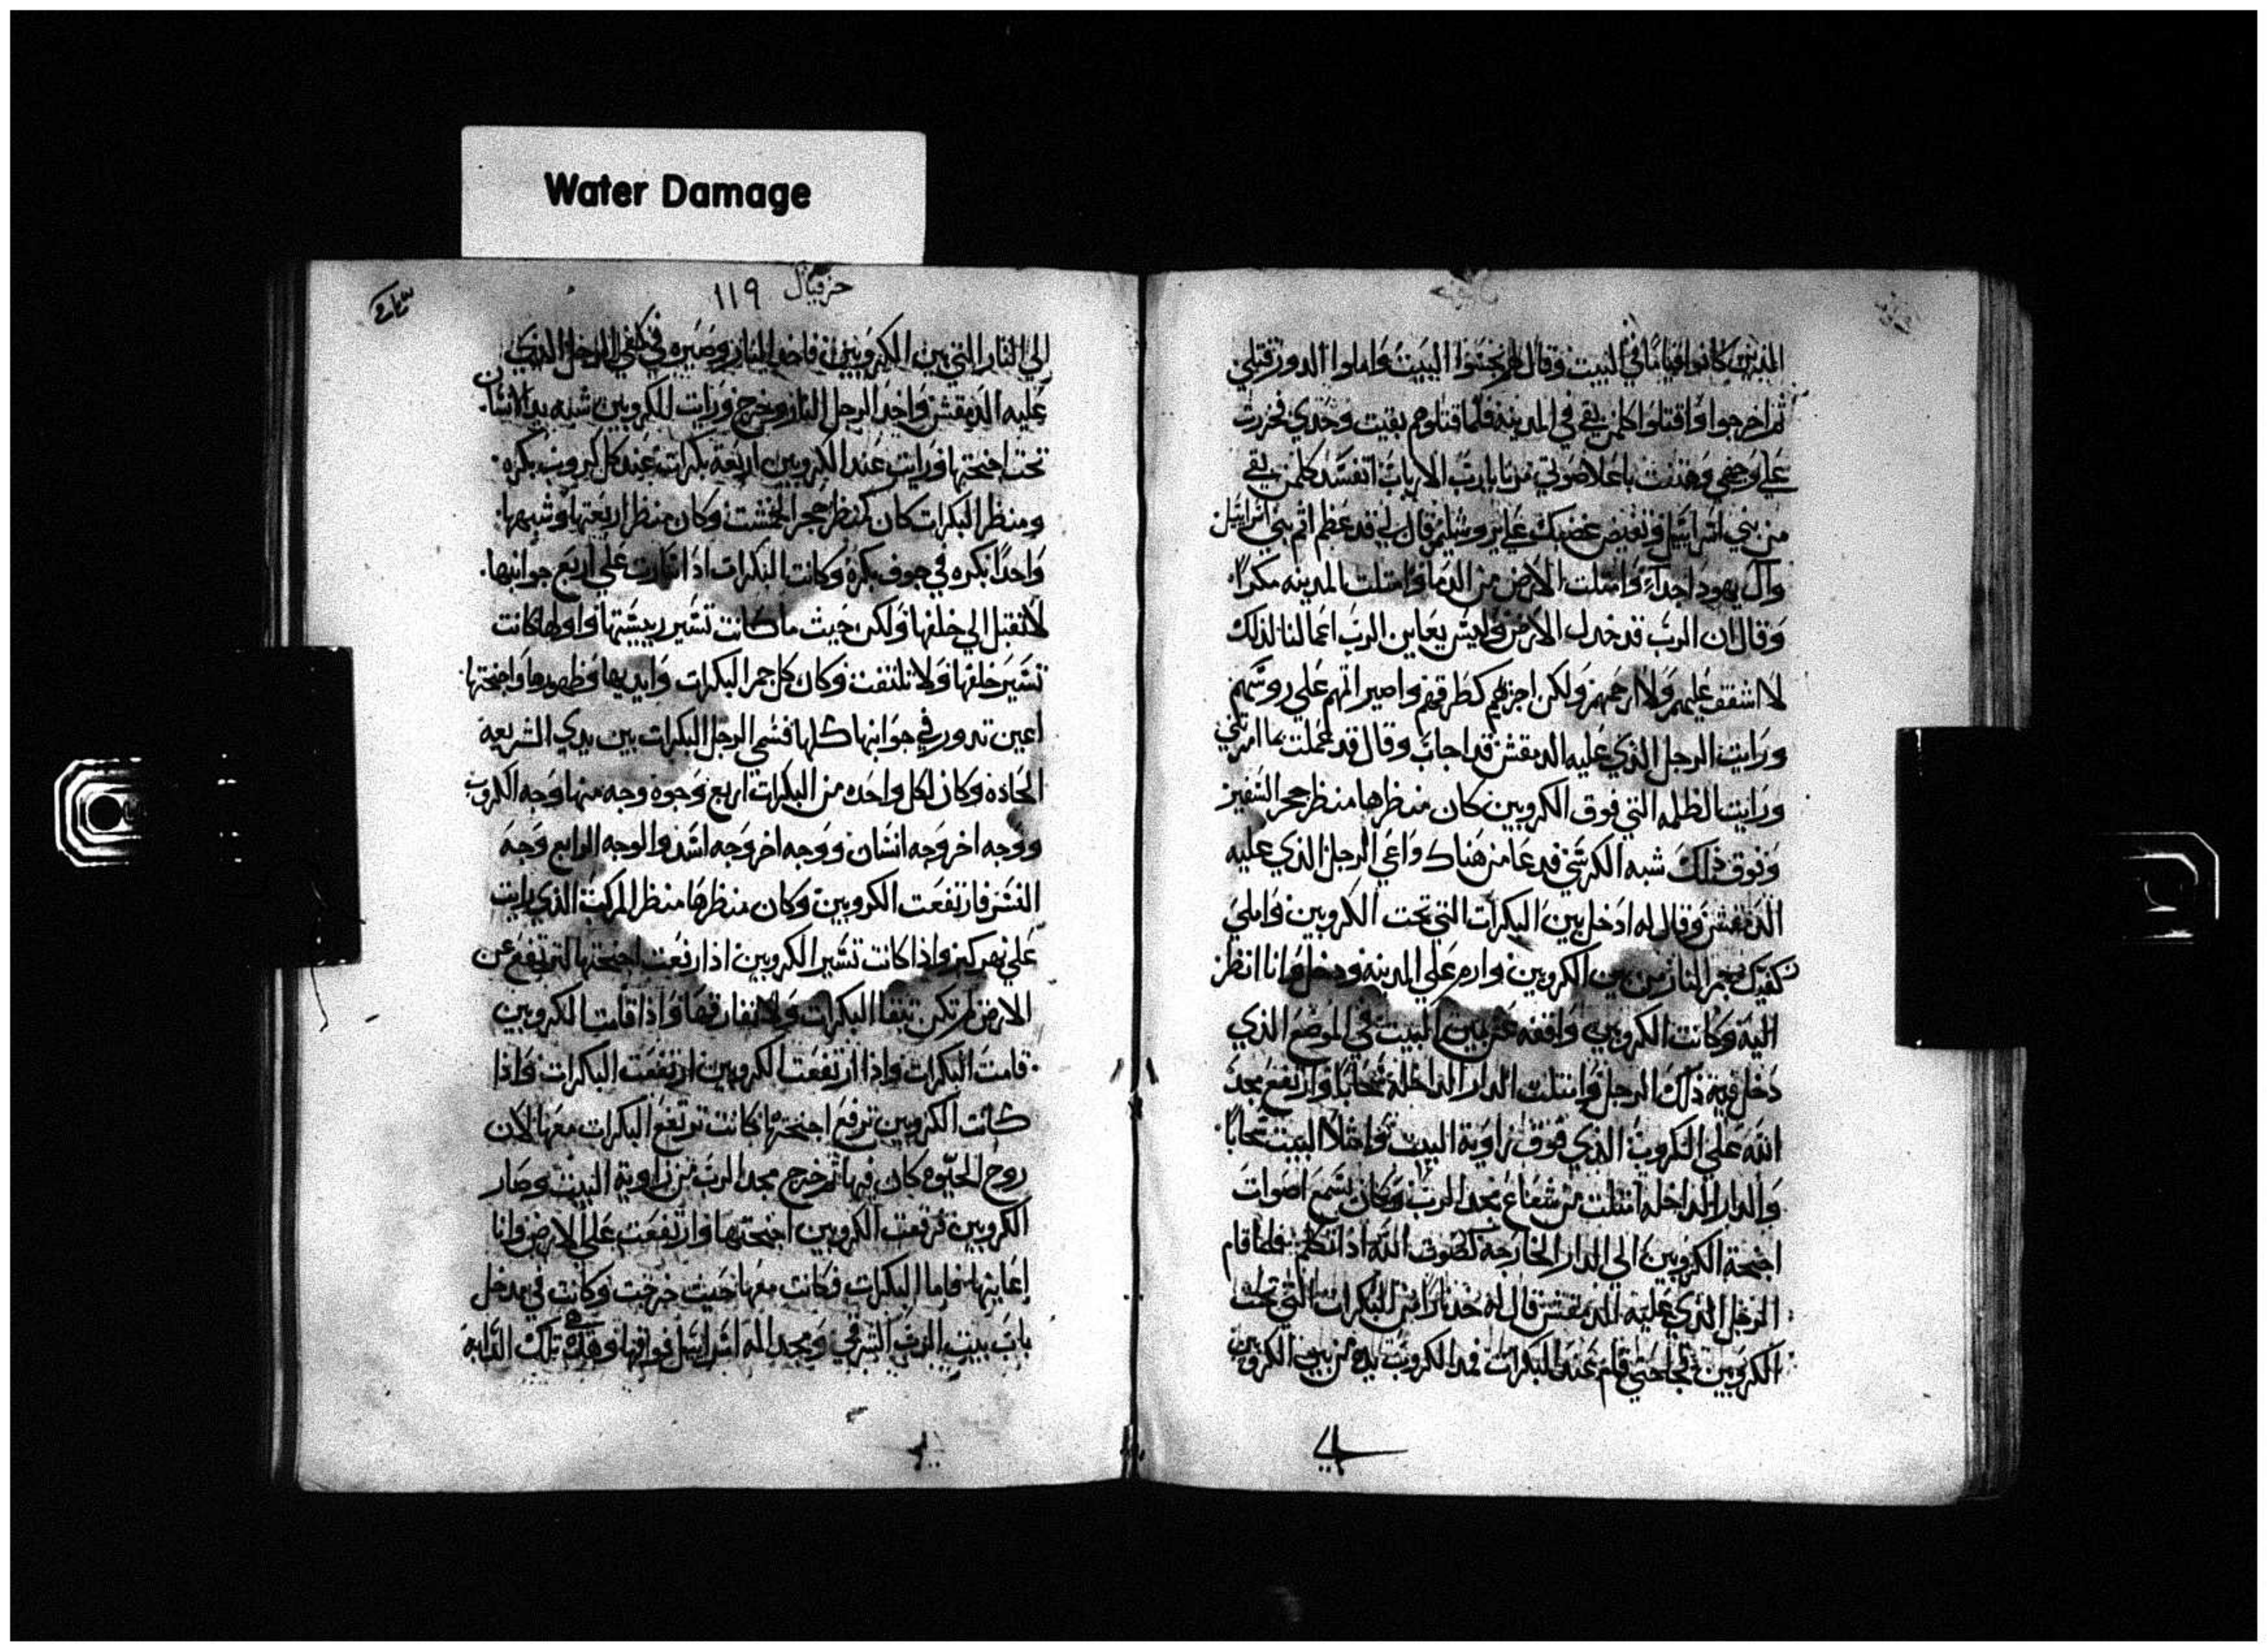 Water Damage
الذين كانوا قياما في البيت وقال لهم نجسوا البيت واملوا الدور قتلي
ثم اخرجوا واقتلوا كلمن بقي في المدينه فلما قتلوهم بقيت وحدي فخررت
علي وجهي وهتفت باعلا صوتي يارب الارباب اتفسد كلمن بقي
من بني اسراييل وتفيض غضبك علي يروشليم قال لي قد عظم اثم بني اسراييل
وال يهودا جدا وامتلت الارض من الدما وامتلت المدينه مكرا
وقال ان الرب قد خذل الارض وليس يعاين الرب اعمالنا لذلك
لا اشفق عليهم ولا ارحمهم ولكن اجزيهم كطرقهم واصير اثمهم علي روسهم
ورايت الرجل الذي عليه الدمقس قد اجاب وقال قد عملت بما امرتني
ورايت الظله التي فوق الكروبين كان منظرها منظر حجر السفير
وفوق ذلك شبه الكرسي فدعا من هناك داعي الرجل الذي عليه
الدمقس وقال له ادخل بين البكرات التي تحت الكروبين واملي
كفيك جمر النار من بين الكروبين وارم علي المدينه ودخل وانا انظر
اليه وكانت الكروبين واقفه عن يمين البيت في الموضع الذي
دخل فيه ذلك الرجل وامتلت الدار الداخلة سحابا وارتفع مجد
الله علي الكروب الذي فوق زاوية البيت وامتلا البيت سحابا
والدار الداخله امتلت من شعاع مجد الرب وكان يسمع اصوات
اجنحة الكروبين الي الدار الخارجة كصوت الله اذا تكلم فلما قام
الرجل الذي عليه الدمقس قال له خذ نارا من البكرات التي تحت
الكروبين حتي قام عند البكرات فمد الكروب يده من بين الكروبين
حزقيال ١١٩
الي النار التي بين الكروبين فاخذ النار وصيره في كفي الرجل الذي
عليه الدمقس واخذ الرجل النار وخرج ورايت للكروبين شبه يد الانسان
تحت اجنحتها ورايت عند الكروبين اربعة بكرات عند كل كروب بكره
ومنظر البكرات كان كمنظر حجر وكان منظر اربعتها وشبهها
واحدا بكره في جوف بكره وكانت البكرات اذا سارت علي اربع جوانبها
لا تقبل الي خلفها ولكن حيث ما كانت تسير واولها كانت
تسير خلفها ولا تلتفت وكان كل جمر البكرات وايديها وظهورها واجنحتها
اعين تدور في جوانبها كلها فسمي الرجل البكرات بين يدي السريعه
الحاده وكان لكل واحده من البكرات اربع وجوه وجه منها وجه الكروب
ووجه اخر وجه انسان ووجه اخر وجه اسد والوجه الرابع وجه
النسر فارتفعت الكروبين وكان منظرها منظر المركب الذي رايت
علي نهر كبر واذا كانت تسير الكروبين اذا رفعت اجنحتها لترتفع عن
الارض لم تكن تبقا البكرات ولا تفارقها واذا قامت الكروبين
قامت البكرات واذا ارتفعت الكروبين ارتفعت البكرات واذا
كانت الكروبين ترفع اجنحتها كانت ترتفع البكرات معها لان
روح الحيوه كان فيها ثم خرج مجد الرب من زاوية البيت وصار
الكروبين فرفعت الكروبين اجنحتها وارتفعت علي الارض وانا
اعاينها فاما البكرات فكانت معها حيث خرجت وكانت في مدخل
باب بيت الرب الشرقي ومجد اله اسراييل فوقها وهذه تلك الدابه